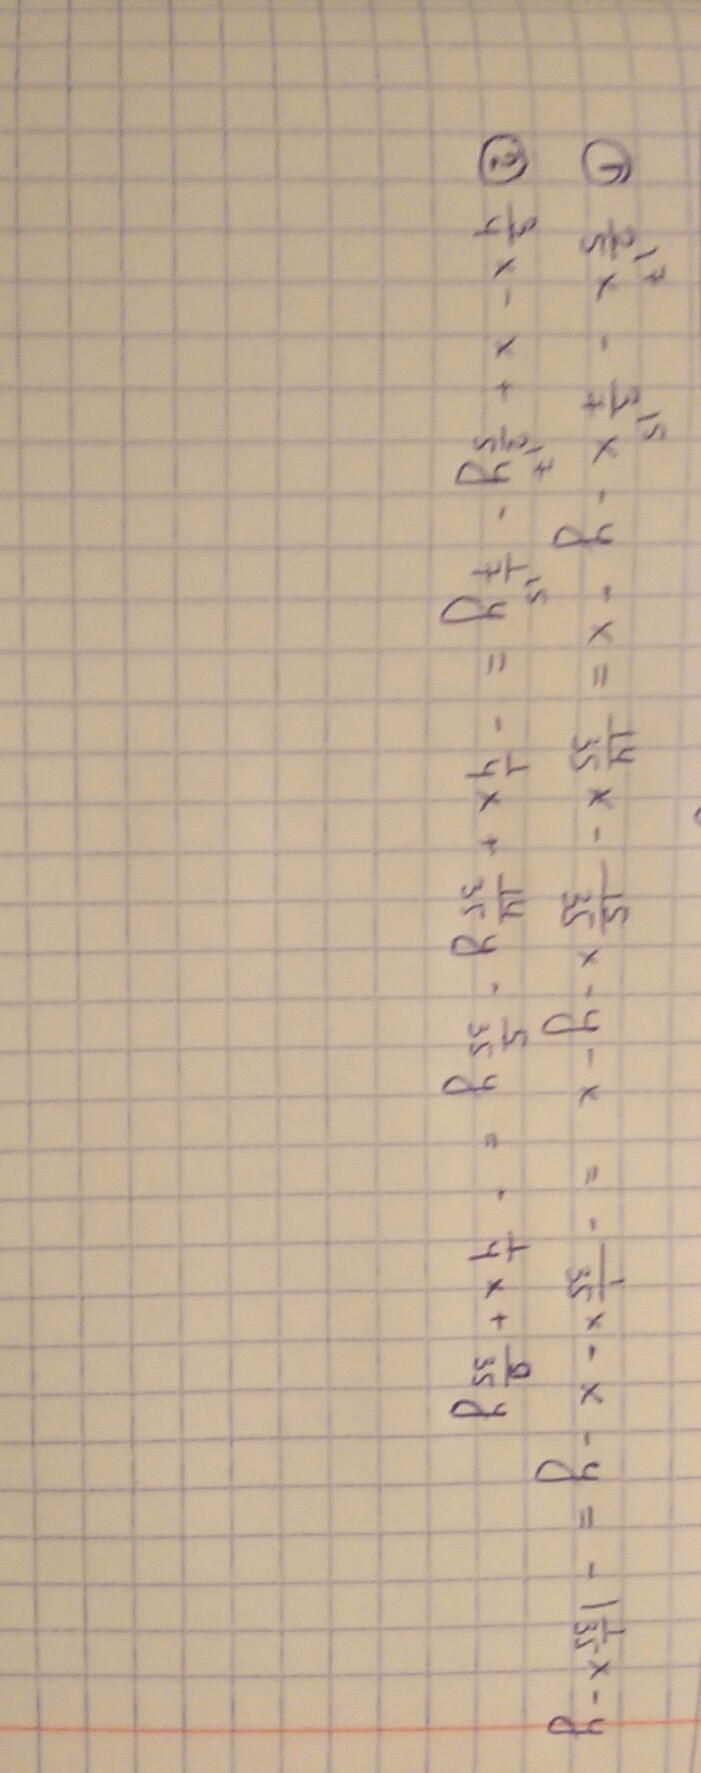 ① 2/5 \7 x - 3/7 \5 x - y - x = 14/35 x - 15/35 x - y - x = - 1/35 x - x - y = - 1 1/35 x - y
② 3/4 x - x + 2/5 \7 y - 1/7 \5 y = - 1/4 x + 14/35 y - 5/35 y = - 1/4 x + 9/35 y